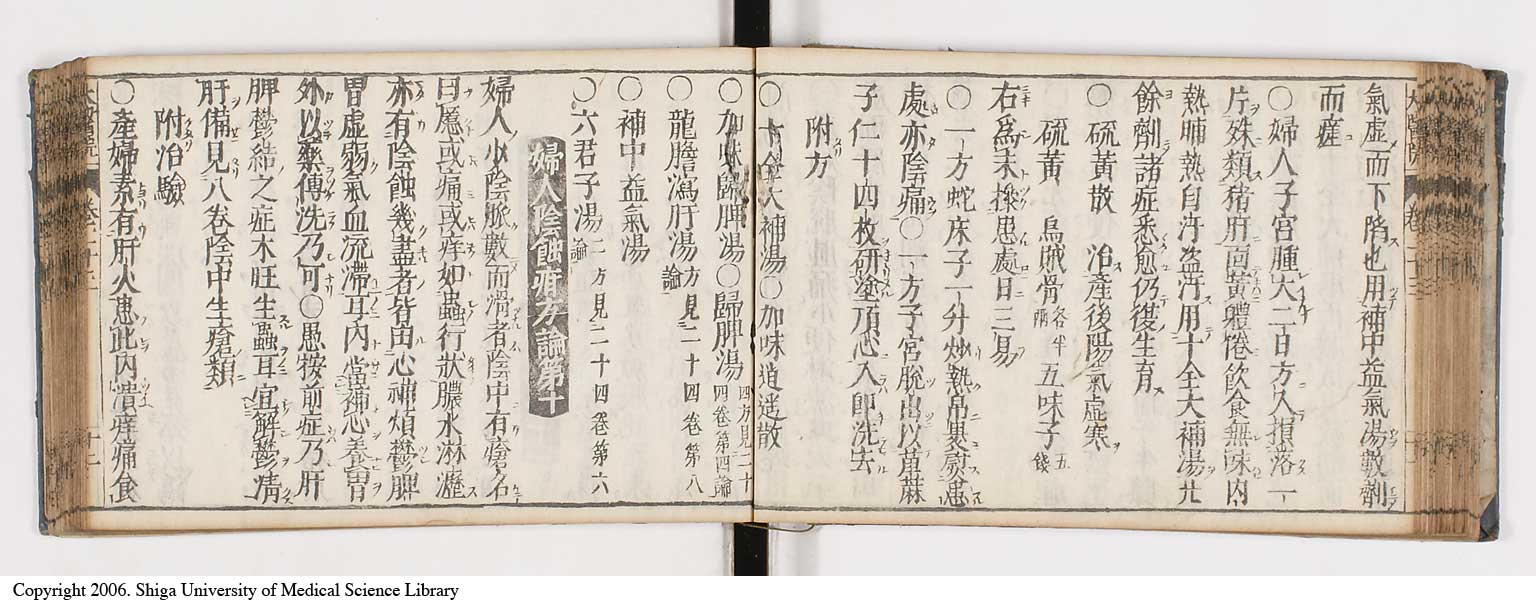 氣虛而下陷也用補中益氣湯數劑
而產
〇婦人子宮腫大二日方入損落一
片殊類猪肝面黃體倦飲食無味内
熱晡熱自汗盗汗用十全大補湯廿
餘劑諸症悉愈仍復生育
〇硫黃散 治產後陽氣虛寒
硫黃 烏賊骨各半兩五味子五錢
右爲末摻患處日三易
〇一方蛇床子一升炒熱帛裹熨患
處亦陰痛〇一方子宮脫出以萆麻
子仁十四枚研塗頂心入即洗去
附方
〇十全大補湯〇加味逍遥散
〇加味歸脾湯〇歸脾湯四方見二十四卷第四論
〇龍膽瀉肝湯方見二十四卷第八論
〇補中益氣湯
〇六君子湯二方見二十四卷第六論
婦人陰蝕瘡方論第十
婦人少陰脉數而滑者陰中有瘡名
曰䘌或痛或痒如蟲行狀膿水淋瀝
亦有陰蝕幾盡者皆由心神煩鬱脾
胃虛弱氣血流滯耳内當補心養胃
外以藥傅洗乃可〇愚按前症乃肝
脾鬱結之症木旺生蟲耳宜解鬱清
肝備見八卷陰中生瘡類
附治驗
〇產婦素有肝火患此内潰痒痛食
Copyright 2006. Shiga University of Medical Science Library